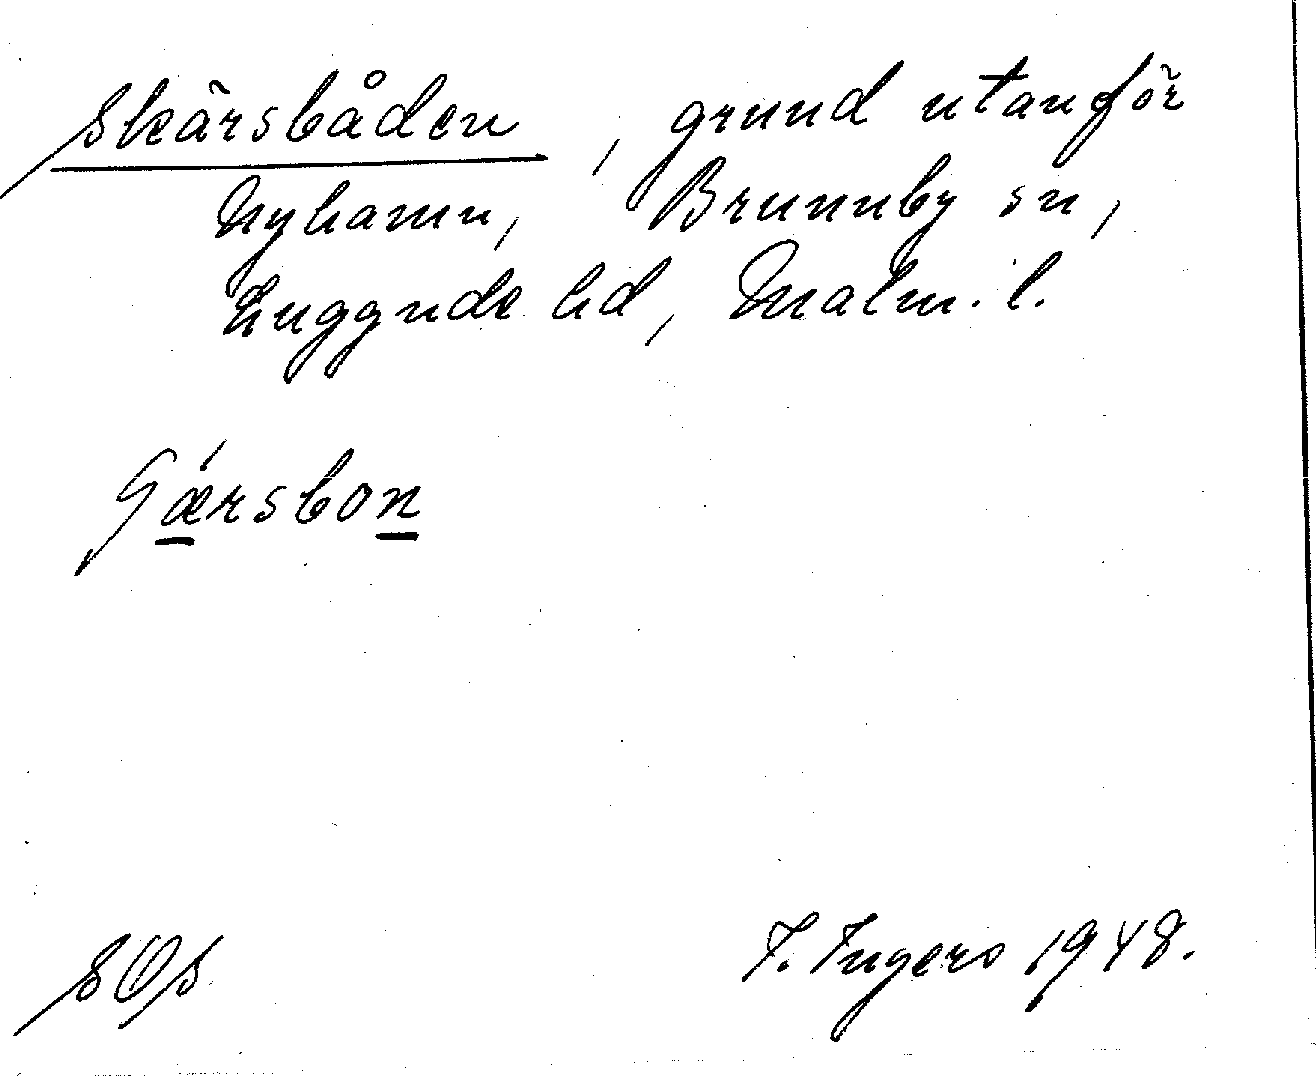 Skärsbåden, grund utanför
Nyhamn, Brunnby sn,
Luggude hd, Malm. l.
Gǽrsbon
SOS
I. Ingers 1948.